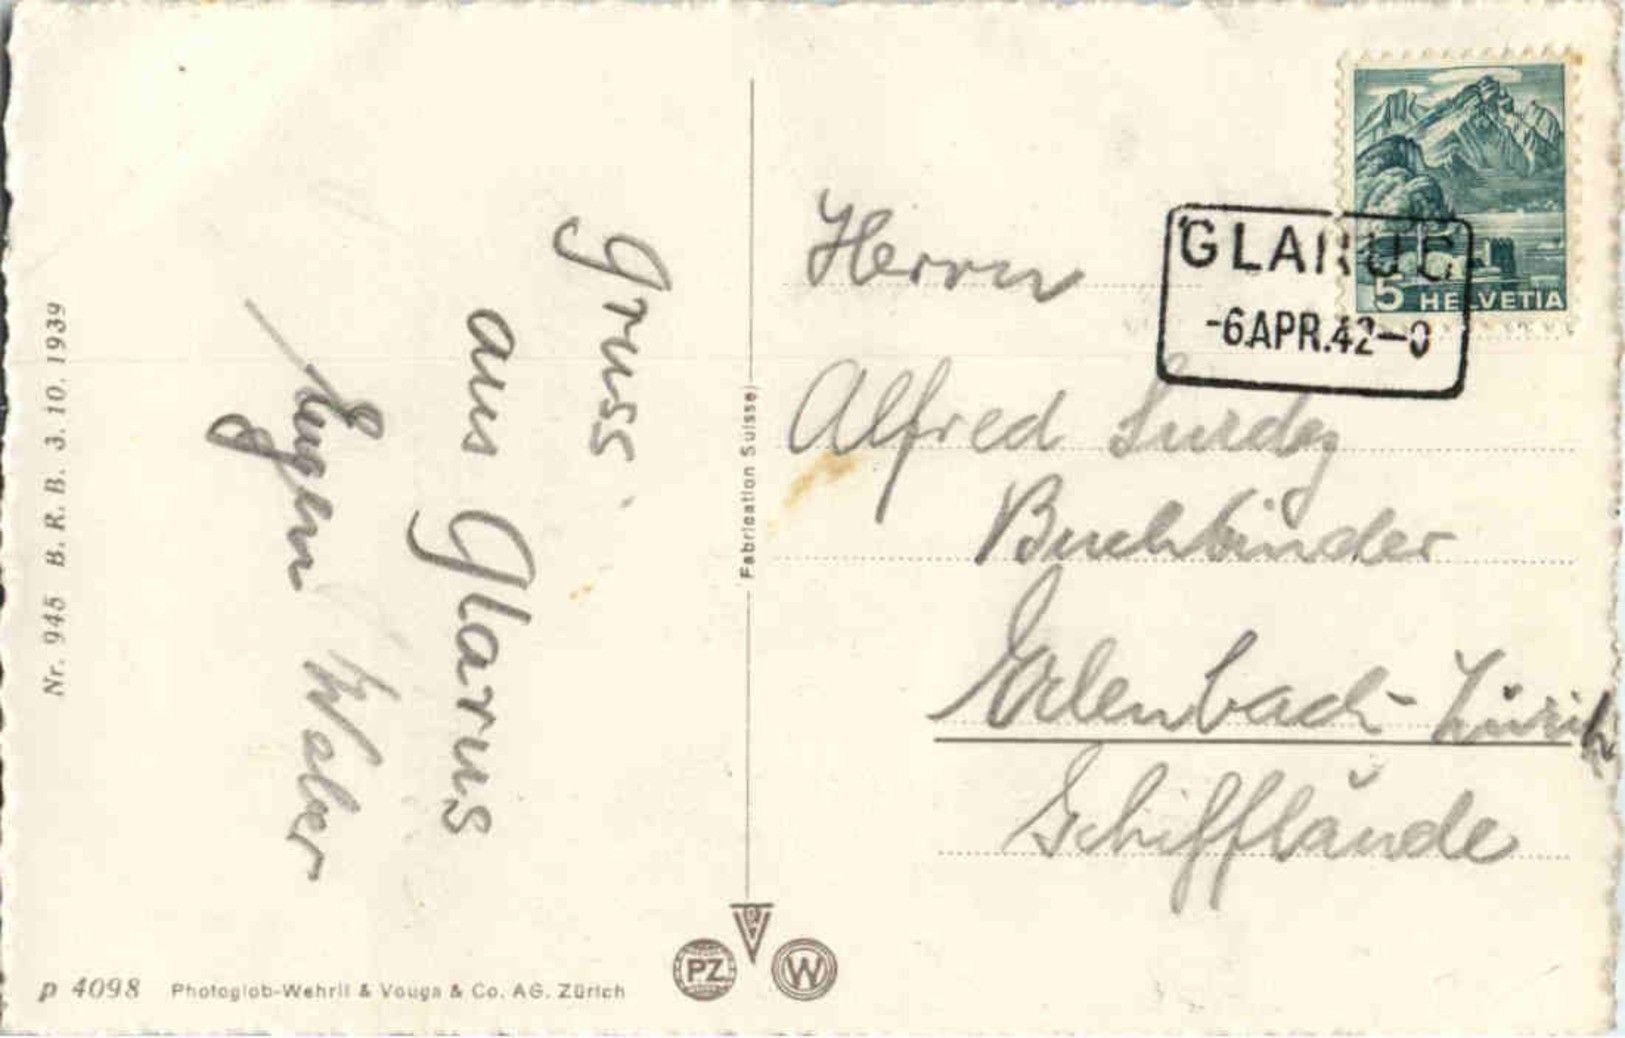 Gruss
aus Glarus
Eugen Weber
Nr. 945 B. R. B. 3. 10. 1939
p 4098 Photoglob-Wehrli & Vouga & Co. AG. Zürich
Fabrication Suisse
PZ
W
GLARUS
-6.APR.42-0
5 HELVETIA
Herrn
Alfred
Buchbinder
Erlenbach-Zürich
Schifflände